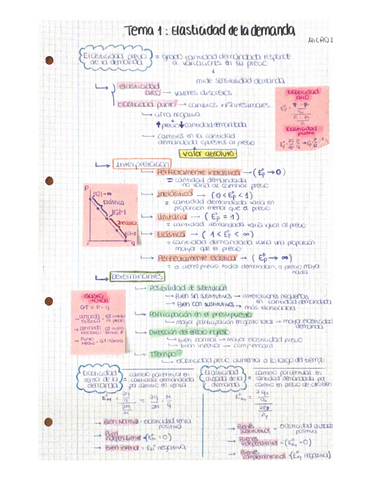 Tema 1: Elasticidad de la demanda
MICRO I
Elasticidad precio de la demanda = grado cantidad demandada responde
a variaciones en su precio
mide sensibilidad demanda
Elasticidad arco → valores discretos
Elasticidad punto → cambios infinitesimales
cifra negativa
↑ precio ↓ cantidad demandada
cambios en su cantidad
demandada opuestos al precio
valor absoluto
Elasticidad
arco
Elasticidad
punto
Interpretación
Perfectamente inelástica → (Ep → 0)
= cantidad demandada
no varía al cambiar precio
Inelástica → (0 < Ep < 1)
= cantidad demandada varía en
proporción menor que el precio
Unitaria → (Ep = 1)
= cantidad demandada varía igual al precio
Elástica → (1 < Ep < ∞)
= cantidad demandada varía una proporción
mayor que el precio
Perfectamente elástica → (Ep → ∞)
= a cierto precio todos demandan, a precio mayor
nada
P
Determinantes
Posibilidad de sustitución
Bien sin sustitutivos →
Bien con sustitutivos → más elasticidad
Participación en el presupuesto
mayor participación en gasto total → mayor elasticidad
demanda
Dirección del efecto ingreso
bien normal → mayor elasticidad precio
bien inferior →
Tiempo
elasticidad precio aumenta a lo largo del tiempo
Elasticidad
renta de la
demanda
= cambio porcentual en
cantidad demandada por
cambio en renta
Bien normal → elasticidad renta
positiva
Bien
independiente → (= 0)
Bien inferior → negativa
Elasticidad
cruzada de la
demanda
= cambio porcentual en
cantidad demandada por
cambio en precio de otro bien
Bienes
sustitutivos → elasticidad cruzada
positiva
Bienes
independientes → (= 0)
Bienes
complementarios → negativa